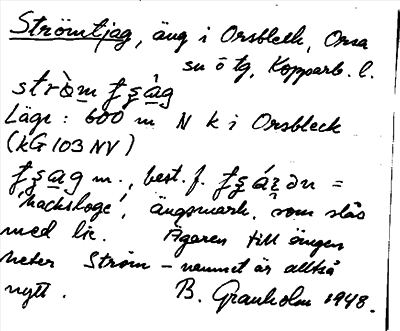 Strömtjag, äng i Orsbleck, Orsa
sn ö tg, Kopparb. l.
strö̀m tʂàg
Läge: 600 m N k i Orsbleck
(kG 103 NV)
tʂag m., best. f. =
'hacksloge', ängsmark, som slås
med lie. Ägaren till ängen
heter Ström – namnet är alltså
nytt. B. Granholm 1948.